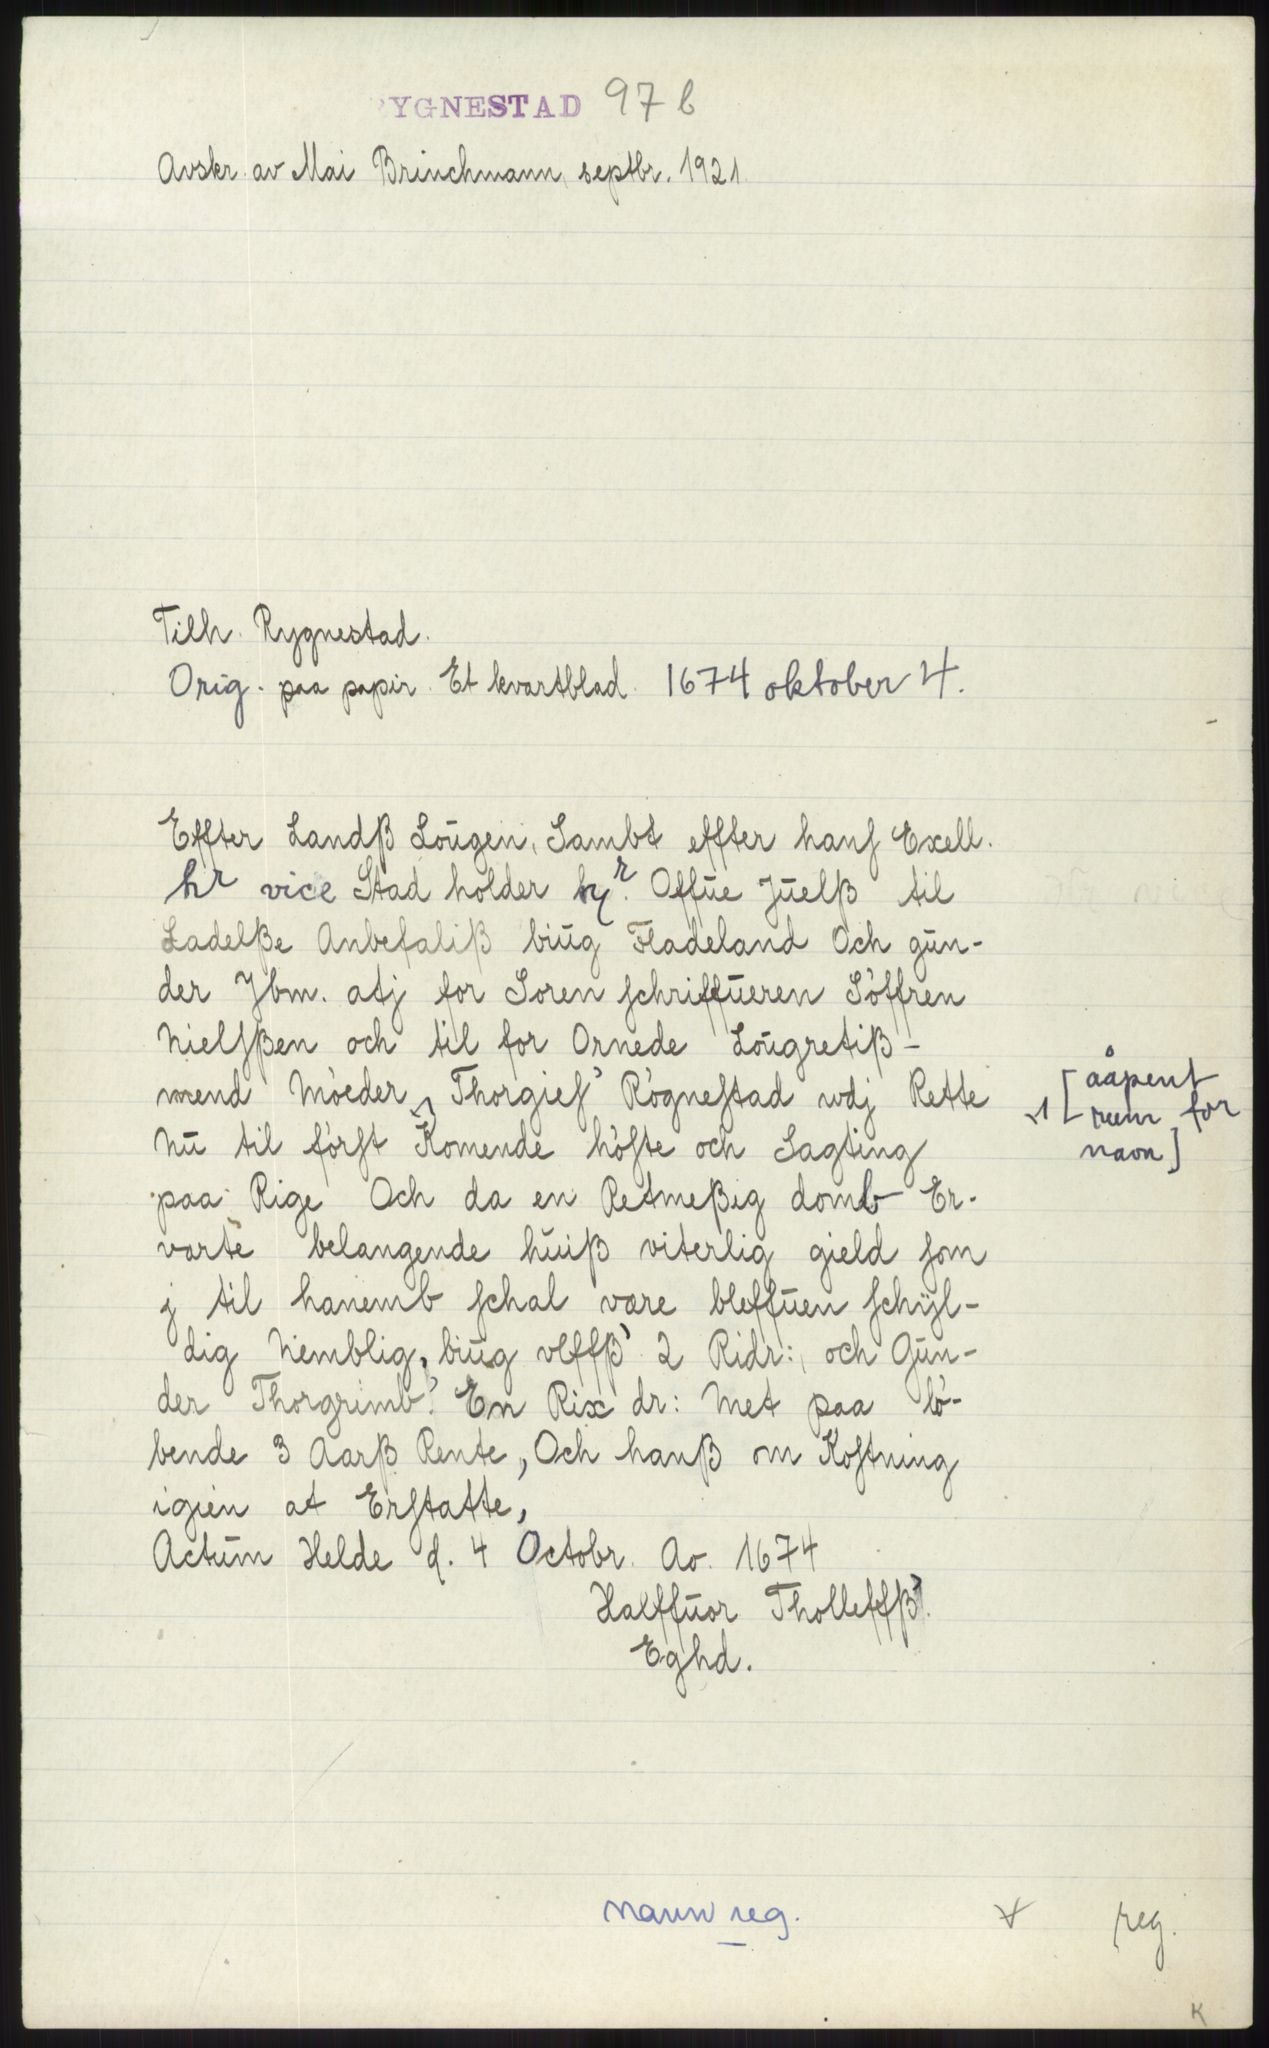 RYGNESTAD 97 b
Avskr. av Mai Brinchmann, septbr. 1921.
Tilh. Rygnestad.
Orig. paa papir. Et kvartblad. 1674 oktober 4.
Effter Landß Lougen, Sambt effter hans Exell.
hr vice Stad holder hr. Offue Juelß til
Ladelße Anbefaliß biug Fladeland Och gun-
der Jbm. atj for Soren schriffueren Söffren
Nielsßen och til for Ornede Lougretiß-
mend Möeder 1 Thorgies Rögnestad wdj Rette
Nu til först Komende höste och Sagting
paa Rige Och da en Retmeßig domb Er-
varte belangende huiß viterlig gield som
j til hanemb schal vare bleffuen schÿl-
dig Nemblig, biug vlffß 2 Ridr:, och Gun-
der Thorgrimb: En Rix dr: Met paa lö-
bende 3 Aarß Rente, Och hanß om Kostning
igien at Erstatte,
Actum Helde d. 4 Octobr. Ao. 1674
Halffuor Tholleffß.
Eghd.
1 [ ååpent
rum for
navn ]
navn reg.
reg.
K